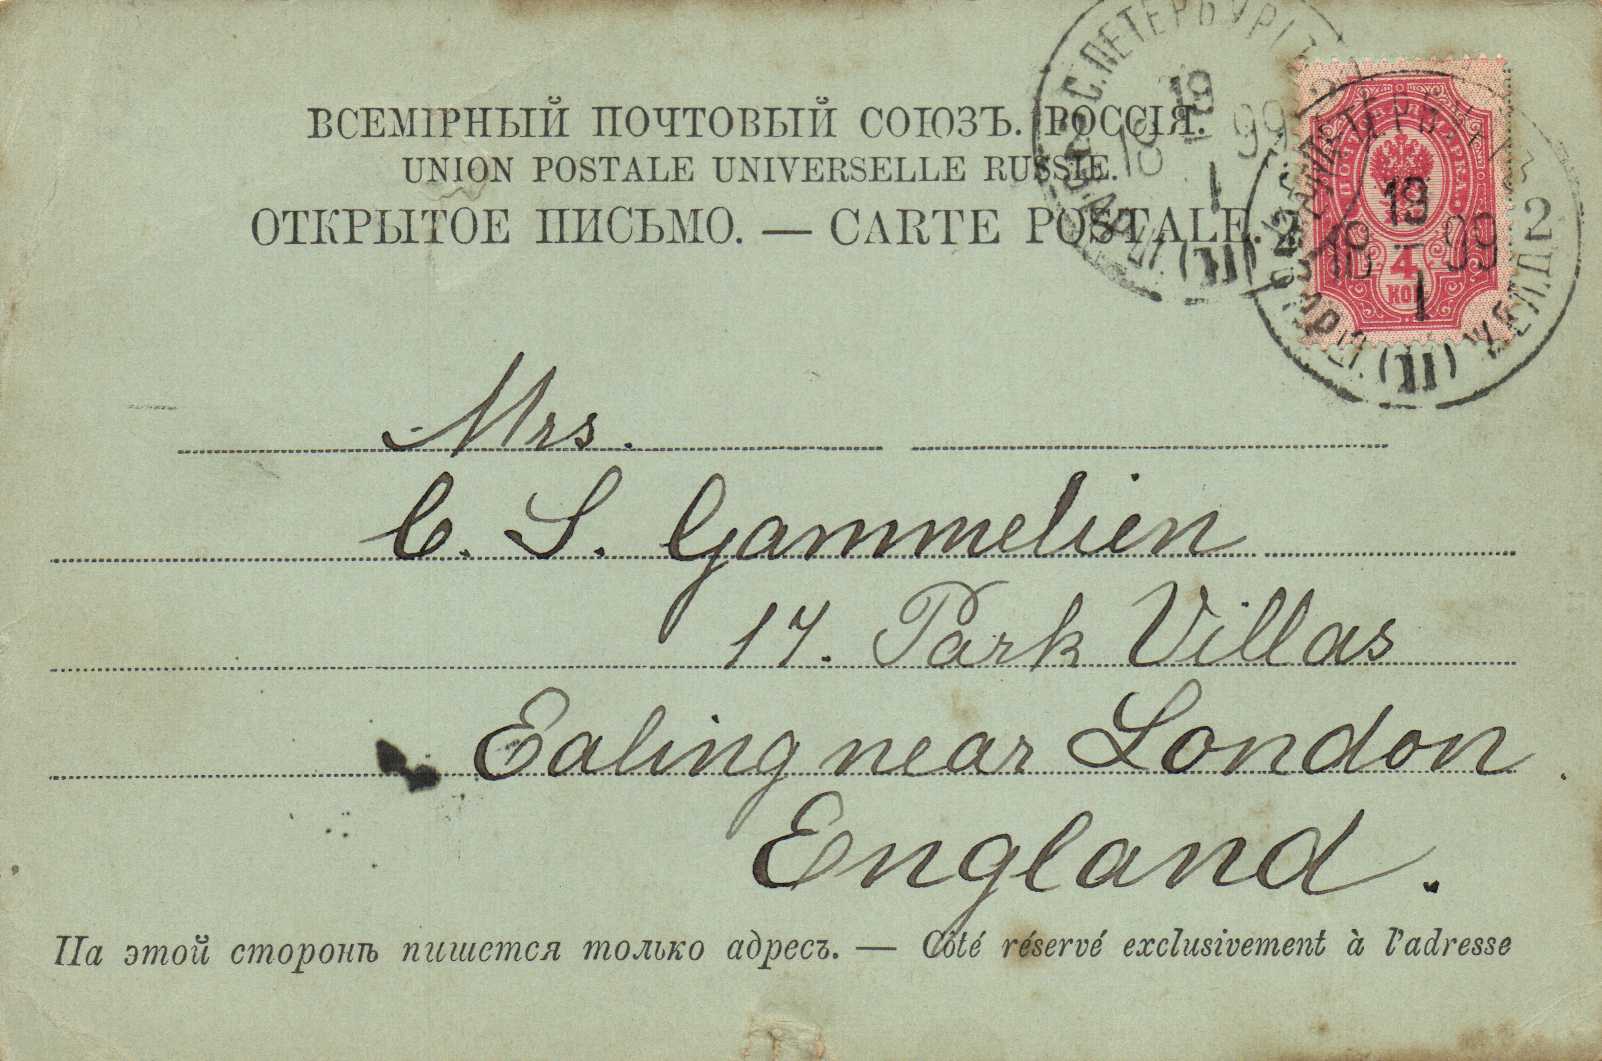 ВСЕМІРНЫЙ ПОЧТОВЫЙ СОЮЗЪ. РОССІЯ.
UNION POSTALE UNIVERSELLE RUSSIE.
ОТКРЫТОЕ ПИСЬМО. — CARTE POSTALE.
С.ПЕТЕРБУРГЪ
19
18 99
I
(II)
ПОЧТОВАЯ МАРКА
4
КОП
2 2
19
18 99
I
(II)
Mrs.
C. S. Gammelien
17. Park Villas
Ealing near London.
England.
На этой сторонѣ пишется только адресъ. — Côté réservé exclusivement à l'adresse